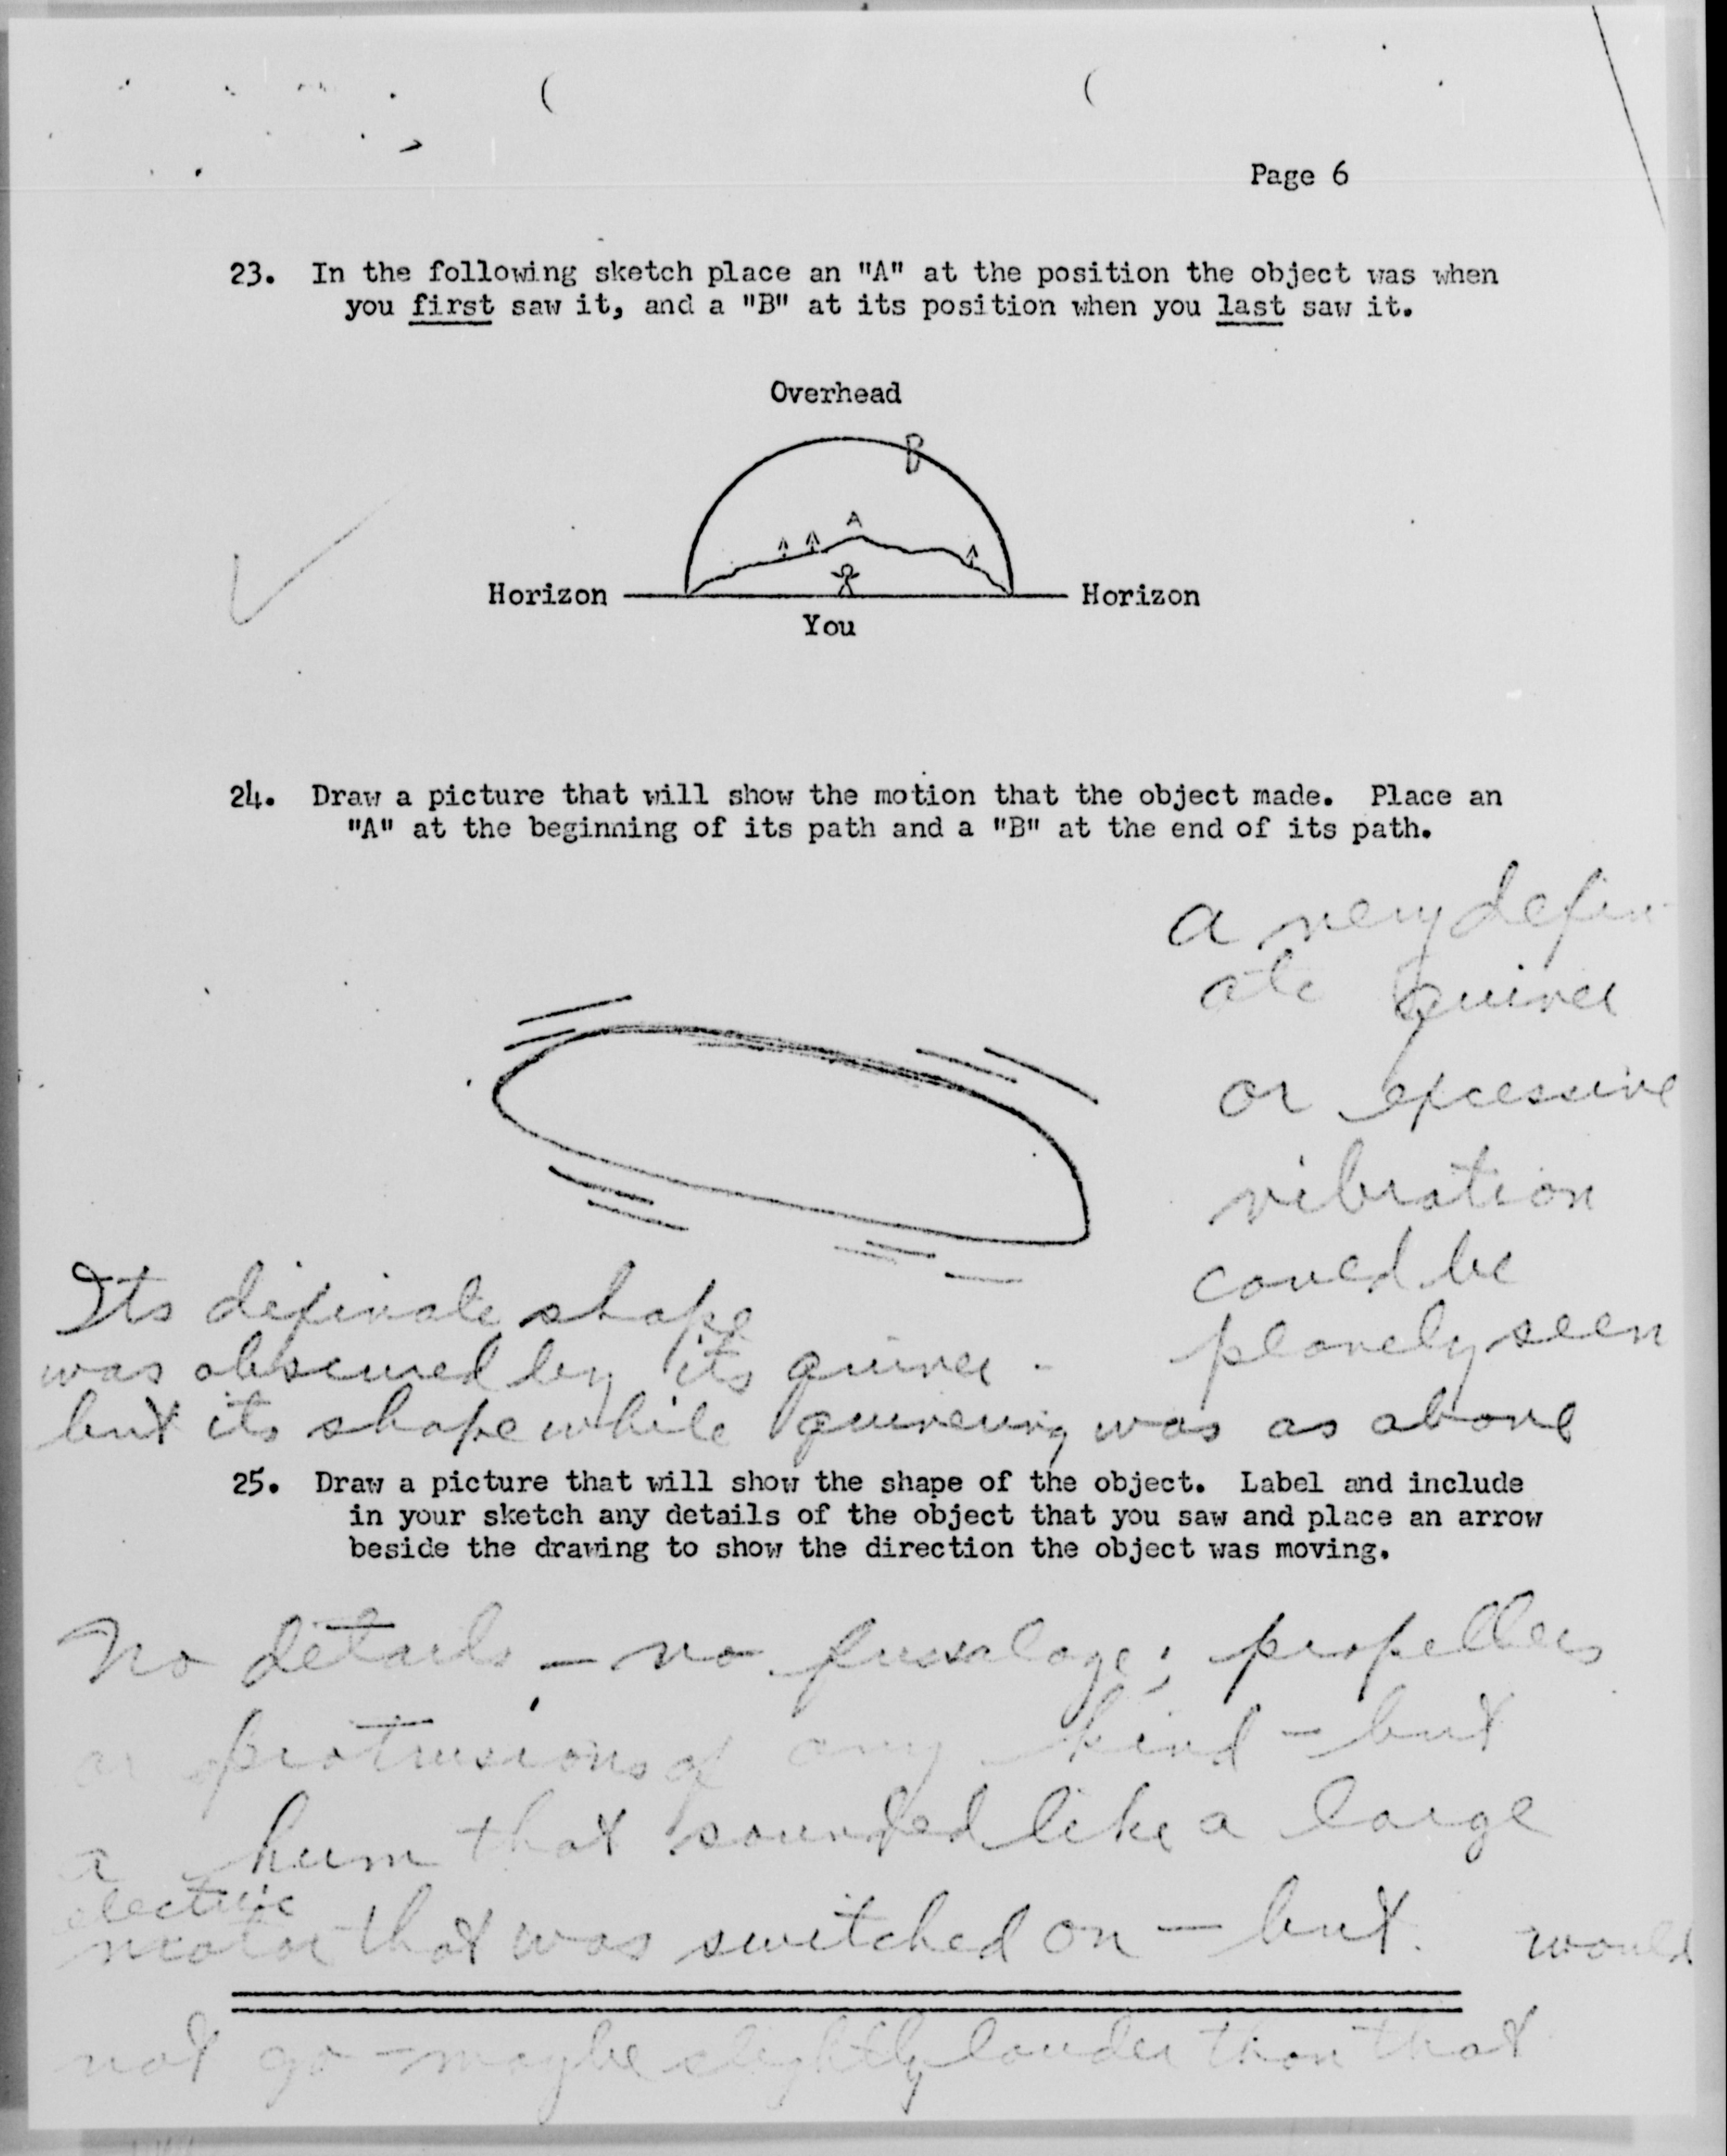 Page 6
23. In the following sketch place an "A" at the position the object was when
you first saw it, and a "B" at its position when you last saw it.
Overhead
B
A
Horizon
Horizon
You
24. Draw a picture that will show the motion that the object made. Place an
"A" at the beginning of its path and a "B" at the end of its path.
a very defin-
ate quiver
or excessive
vibration
coued be
planely seen
Its difinate shape
was obscured by its quiver -
but its shape while quivering was as above
25. Draw a picture that will show the shape of the object. Label and include
in your sketch any details of the object that you saw and place an arrow
beside the drawing to show the direction the object was moving.
No details, - no fusalage; propellers
or protrusions of any kind - but
a hum that sounded like a large
electric
motor that was switched on - but would
not go - maybe slightly louder than that